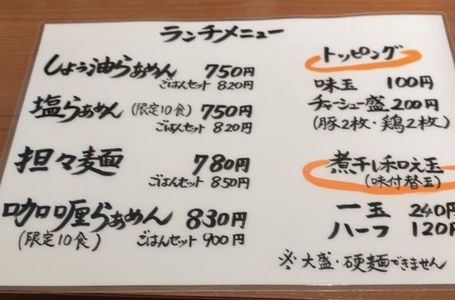 ランチメニュー
しょう油らぁめん 750円
ごはんセット 820円
塩らぁめん (限定10食) 750円
ごはんセット 820円
担々麺 780円
ごはんセット 850円
咖喱らぁめん 830円
(限定10食) ごはんセット 900円
トッピング
味玉 100円
チャーシュー盛 200円
(豚2枚・鶏2枚)
煮干し和え玉
(味付替玉)
一玉 240円
ハーフ 120円
※大盛・硬麺できません